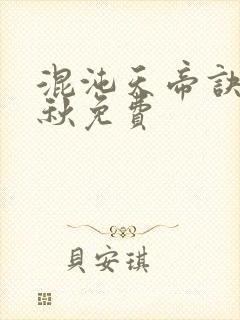 混沌天帝訣
秋免費
貝安琪